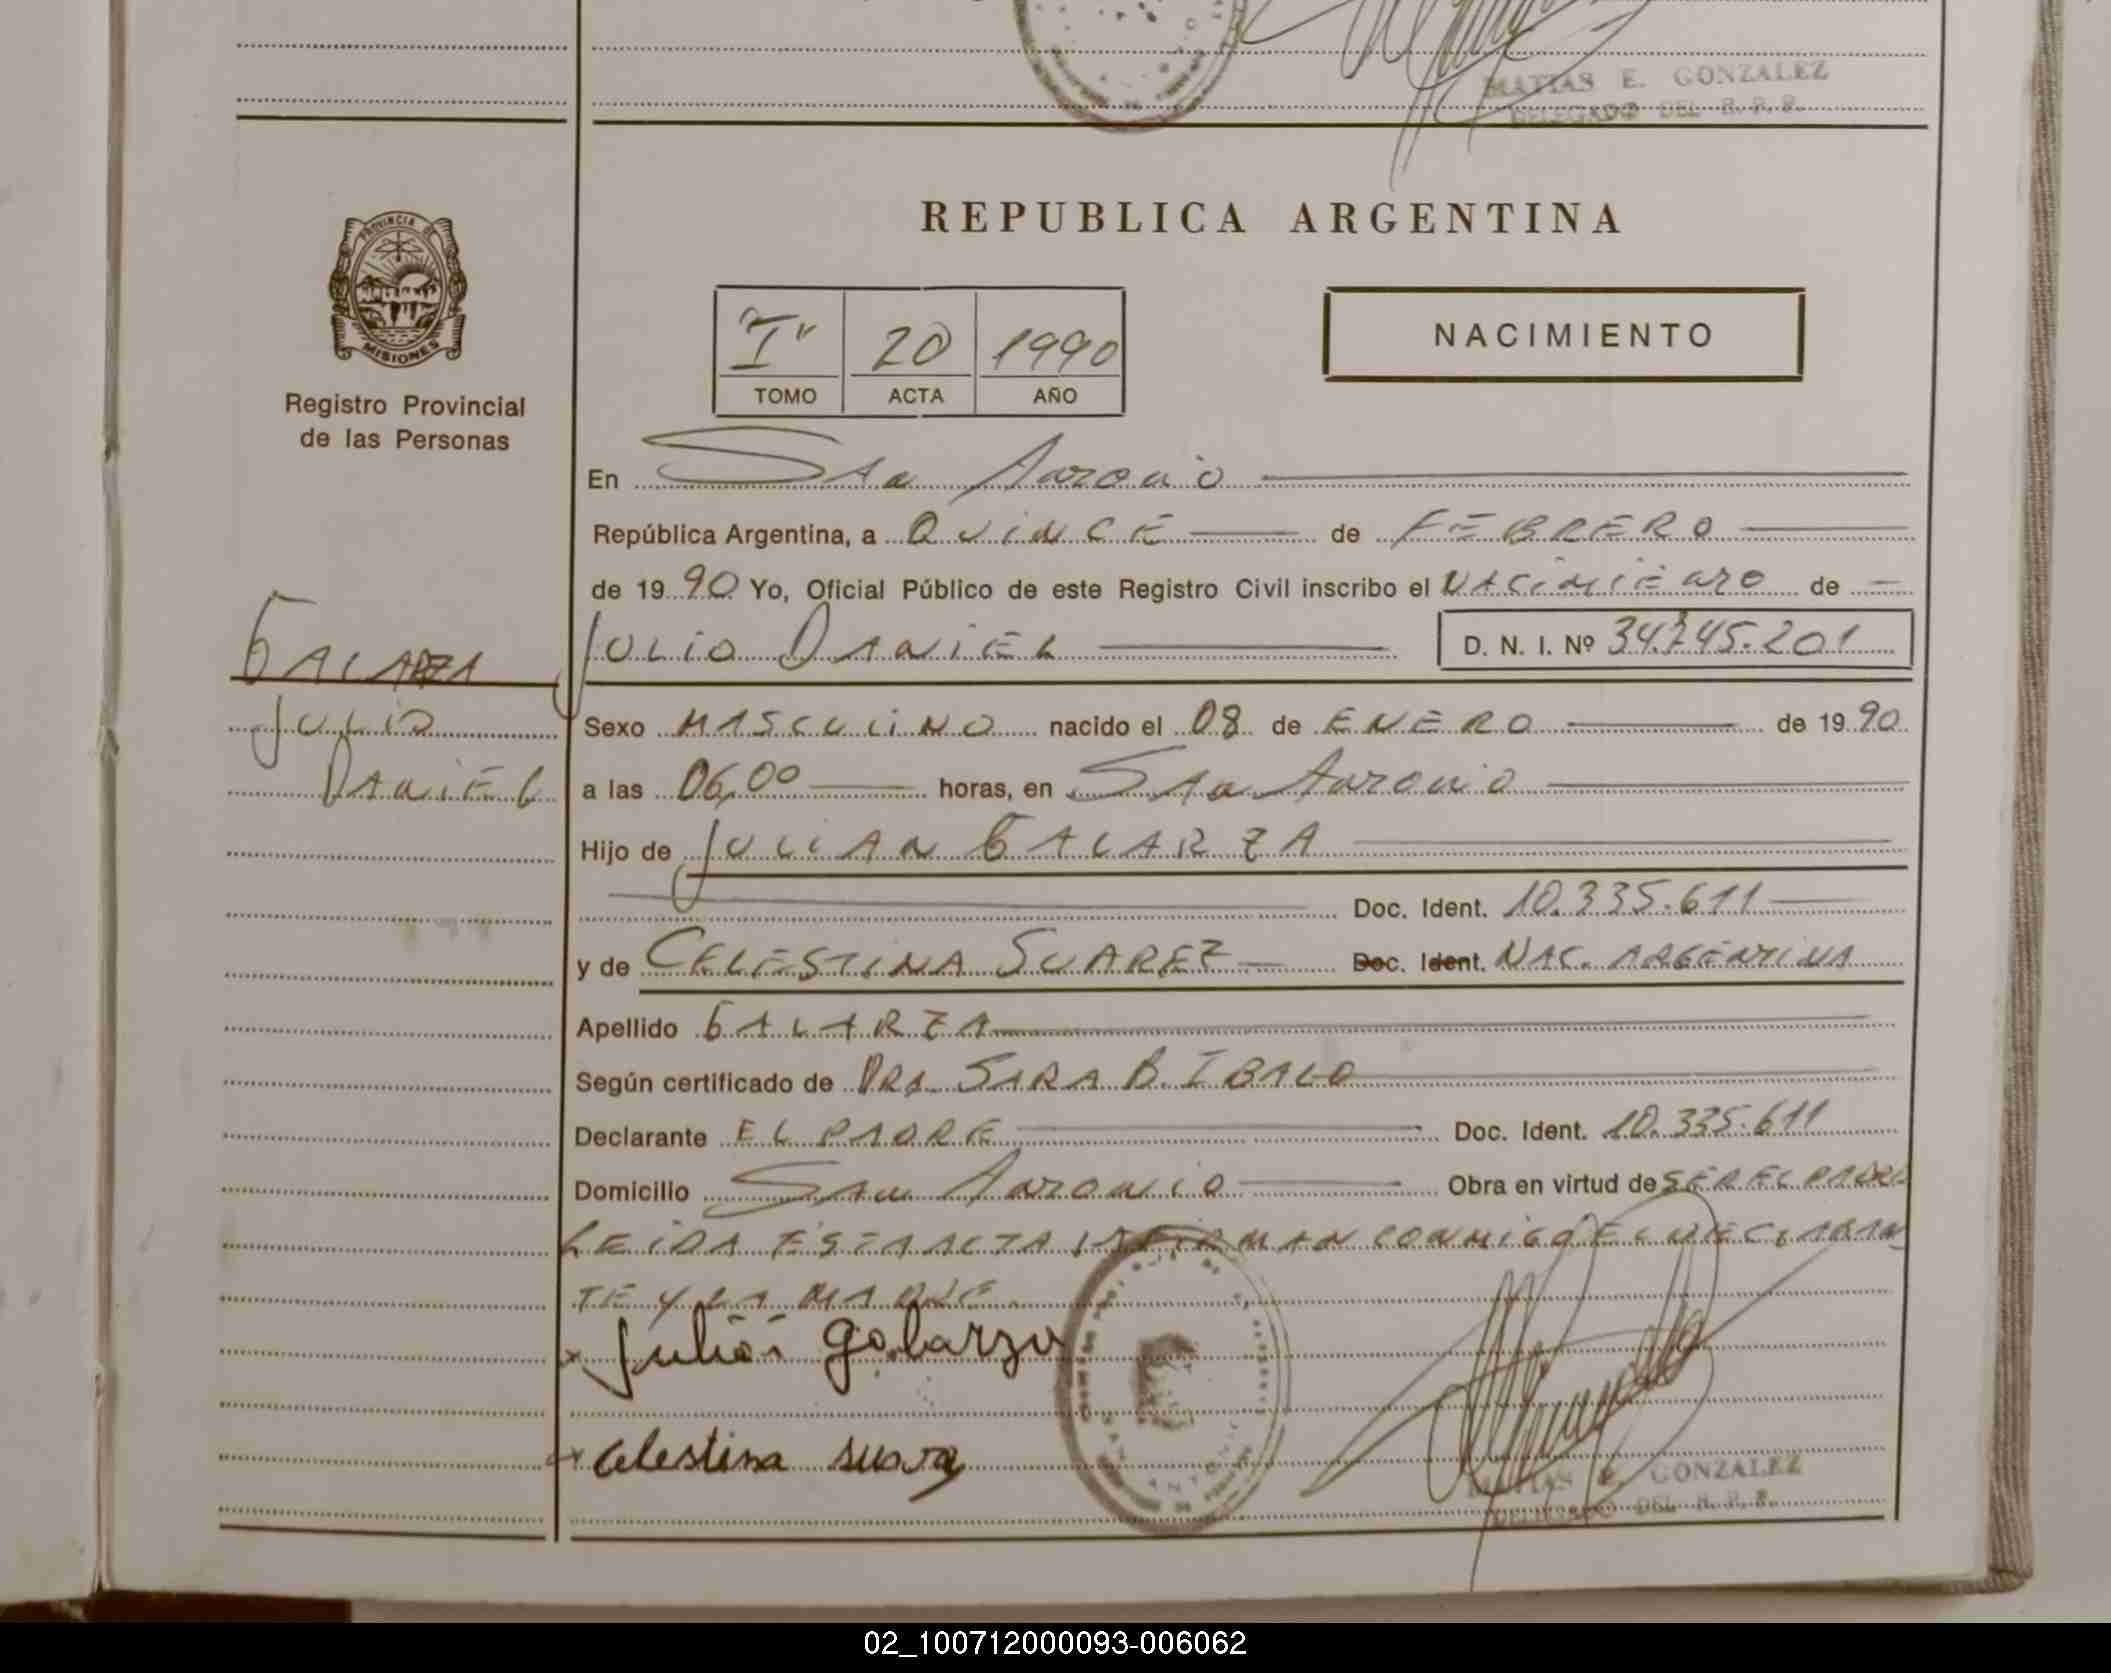 MATIAS E. GONZALEZ
DELEGADO DEL R. P. P.
PROVINCIA DE
MISIONES
Registro Provincial
de las Personas
REPUBLICA ARGENTINA
"I" 20 1990
TOMO ACTA AÑO
NACIMIENTO
En San Antonio
República Argentina, a QUINCE de FEBRERO
de 1990 Yo, Oficial Público de este Registro Civil inscribo el NACIMIENTO de
GALARZA
JULIO DANIEL
D. N. I. Nº 34.745.201
JULIO
DANIEL
Sexo MASCULINO nacido el 08 de ENERO de 1990
a las 06,00 horas, en San Antonio
Hijo de JULIAN GALARZA
Doc. Ident. 10.335.611
y de CELESTINA SUAREZ Doc. Ident. NAC. ARGENTINA
Apellido GALARZA
Según certificado de DRA. SARA B. IBALO
Declarante EL PADRE Doc. Ident. 10.335.611
Domicilio San Antonio Obra en virtud de SER EL PADRE
LEIDA ESTA ACTA LA FIRMAN CONMIGO EL DECLARAN
TE Y LA MADRE
x Julián galarza
x celestina suarez
MATIAS E. GONZALEZ
DELEGADO DEL R. P. P.
02_100712000093-006062